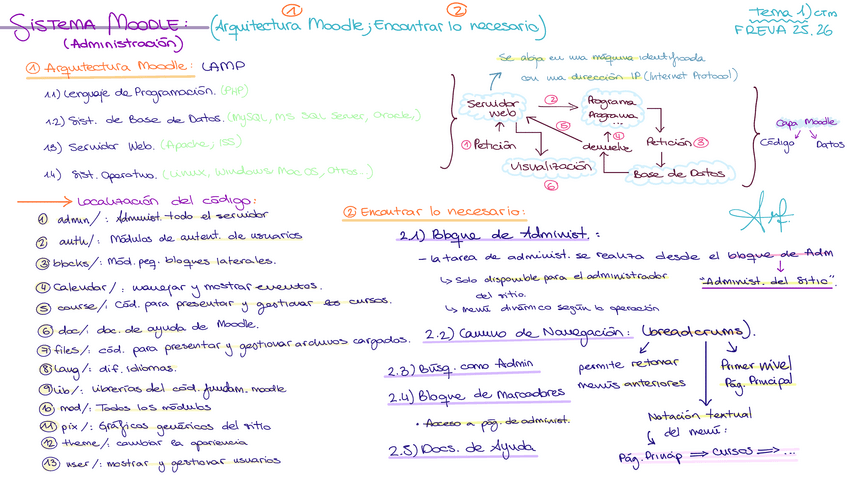 SISTEMA MOODLE: (Arquitectura Moodle; Encontrar lo necesario)
(Administración)
1 2
Tema 1) CTM
FREVA 25.26
① Arquitectura Moodle: LAMP
1.1) Lenguaje de Programación. (PHP)
1.2) Sist. de Base de Datos. (MySQL, MS SQL Server, Oracle,)
1.3) Servidor Web. (Apache, ISS)
1.4) Sist. Operativo. (Linux, Windows Mac OS, Otros...)
Se aloja en una máquina identificada
con una dirección IP (Internet Protocol)
Servidor Web
② Programa
Programa
...
① Petición
⑤
④ devuelve
Petición ③
Visualización
⑥
Base de Datos
Capa Moodle
Código Datos
→ Localización del código:
① admin/: Administ. todo el servidor
② auth/: Módulos de autent. de usuarios
③ blocks/: Mód. peq. bloques laterales.
④ Calendar/: manejar y mostrar eventos.
⑤ course/: Cód. para presentar y gestionar los cursos.
⑥ doc/: doc. de ayuda de Moodle.
⑦ files/: cód. para presentar y gestionar archivos cargados.
⑧ lang/: dif. Idiomas.
⑨ lib/: Librerías del cód. fundam. moodle
⑩ mod/: Todos los módulos
⑪ pix/: Gráficos genéricos del sitio
⑫ theme/: cambiar la apariencia
⑬ user/: mostrar y gestionar usuarios
② Encontrar lo necesario:
2.1) Bloque de Administ.:
- La tarea de administ. se realiza desde el bloque de Adm
↳ Solo disponible para el administrador
del sitio.
↳ menú dinámico según la operación
↓
"Administ. del Sitio".
2.2) Camino de Navegación: (breadcrums).
permite retornar
menús anteriores
Primer nivel
Pág. Principal
Notación textual
del menú:
Pág. Princip ⇒ cursos ⇒ ...
2.3) Búsq. como Admin
2.4) Bloque de Marcadores
• Acceso a pág. de administ.
2.5) Docs. de Ayuda